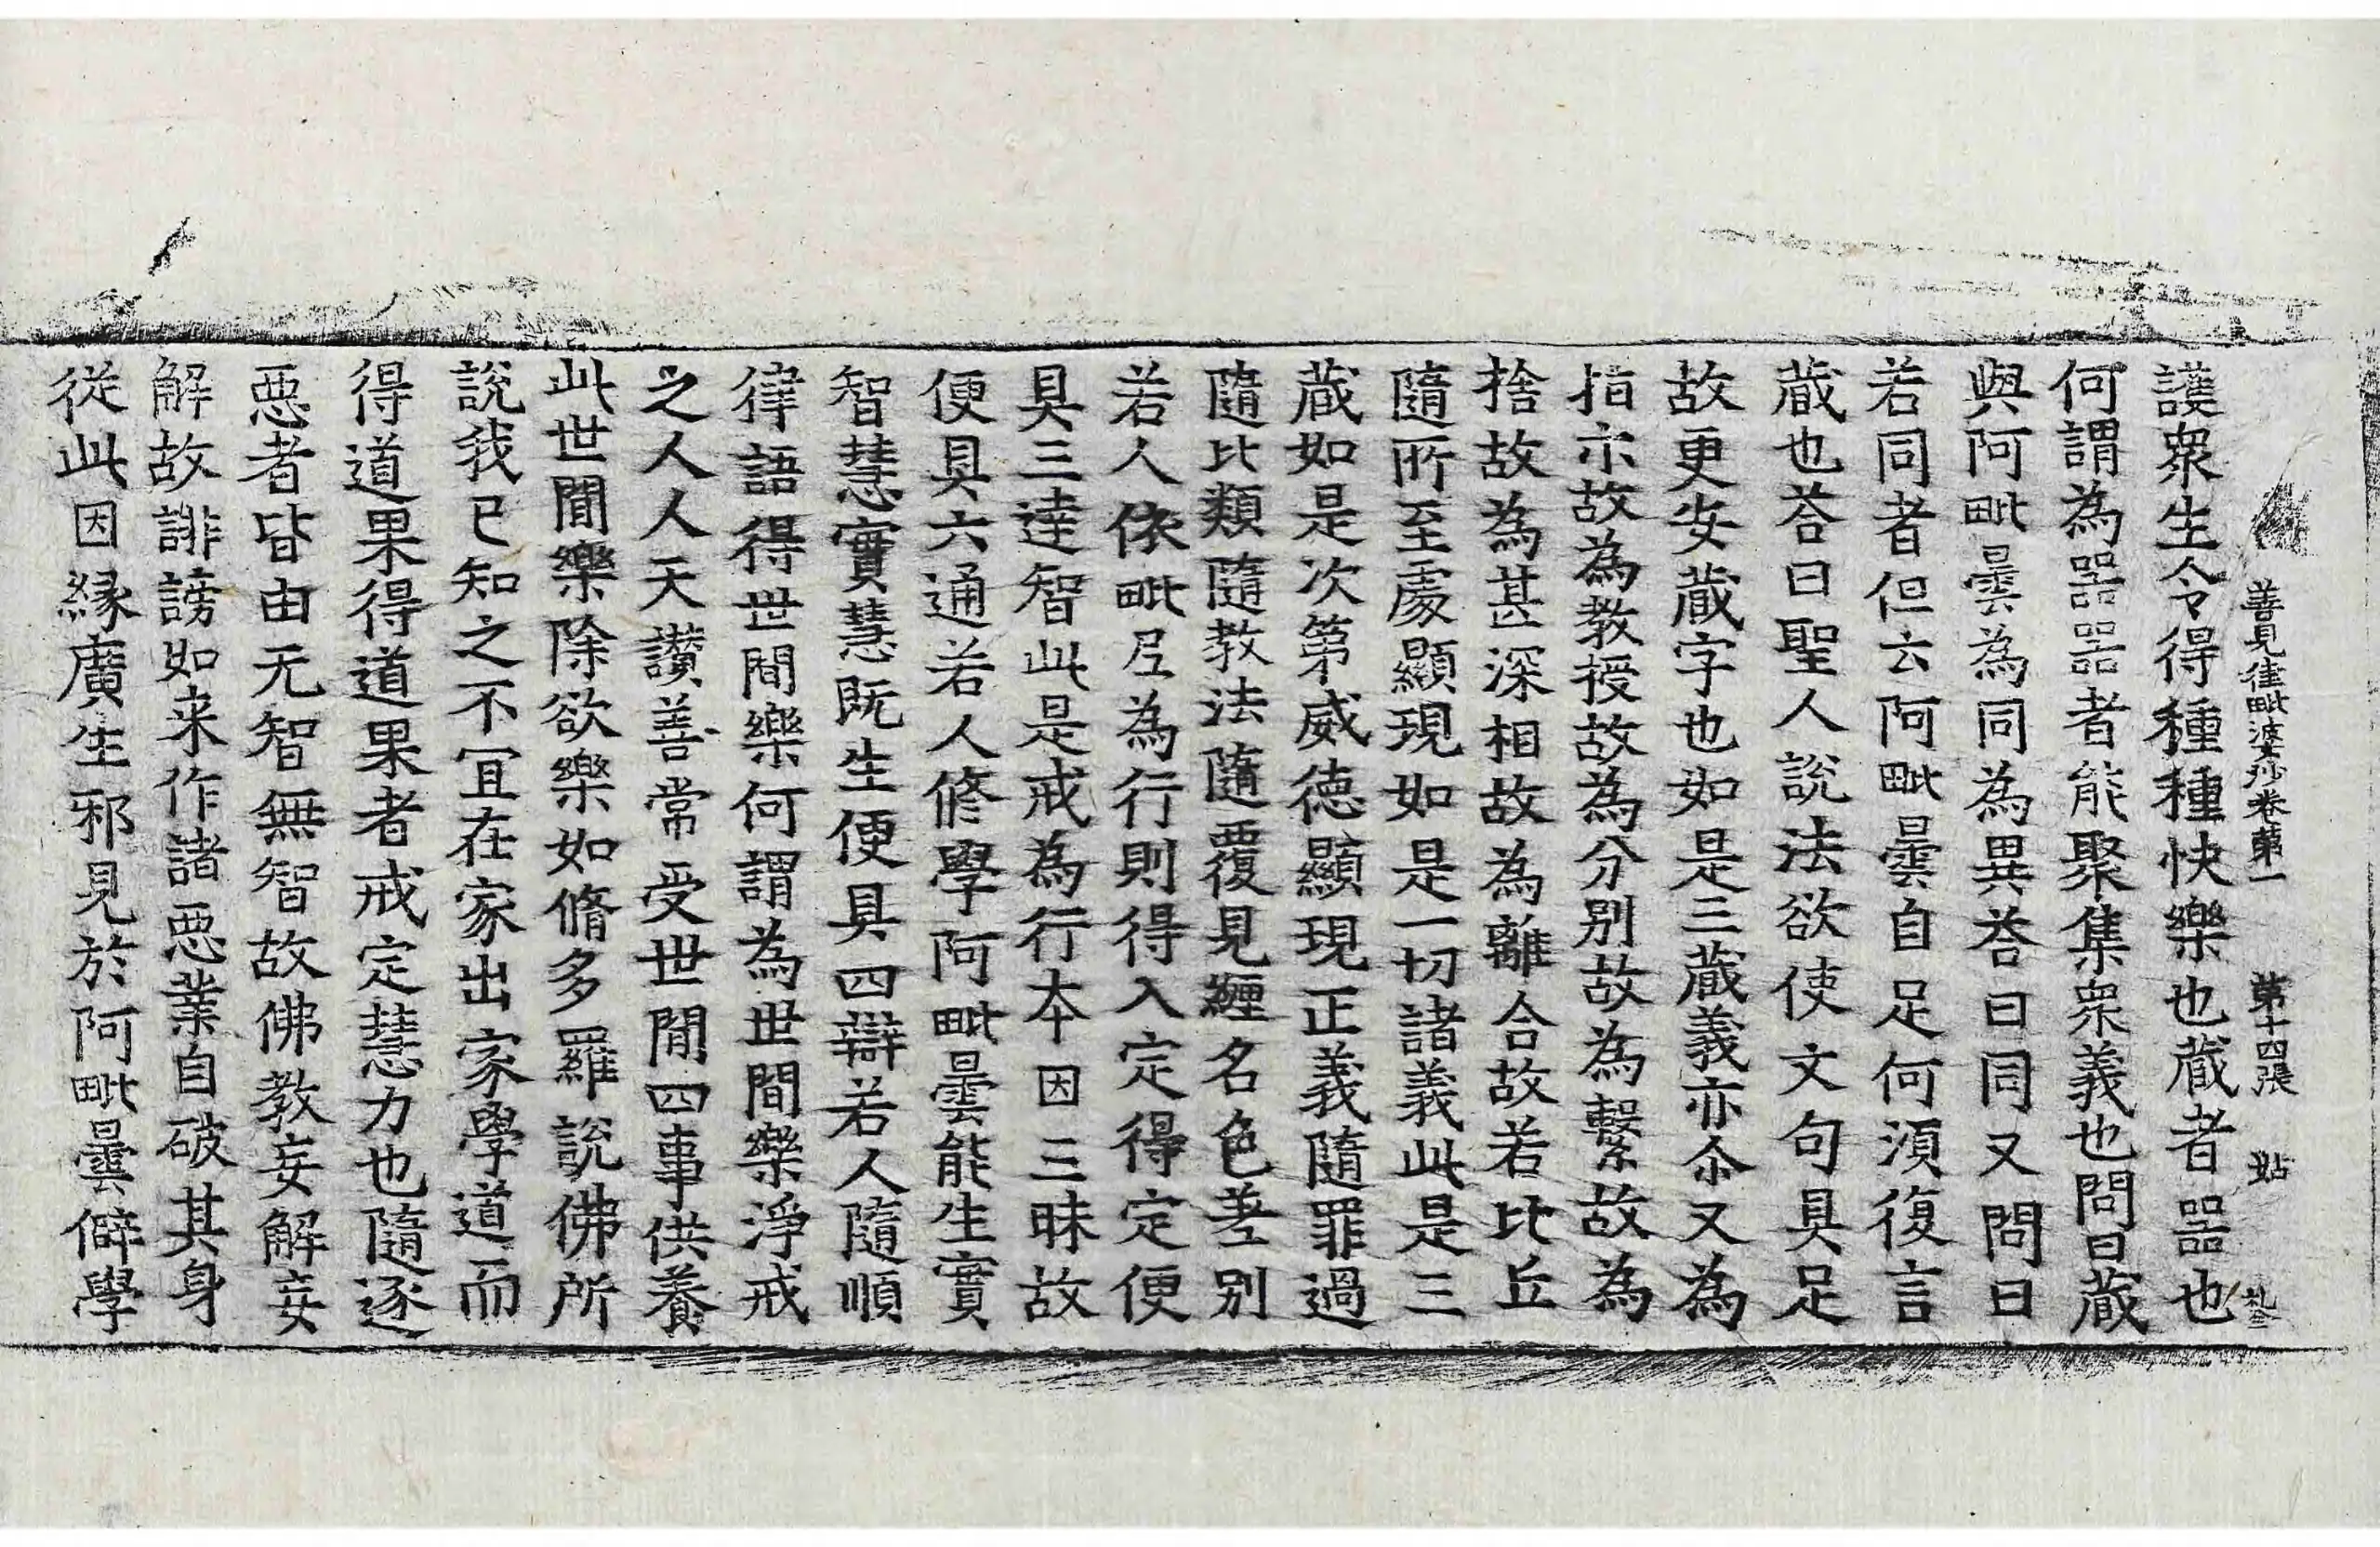 善見律毗婆沙卷第一 第十四張 
護衆生令得種種快樂也蔵者器也
何謂為器器者能聚集衆義也問曰蔵
與阿毗曇為同為異荅曰同又問曰
若同者但云阿毗曇自足何須復言
蔵也荅曰聖人說法欲使文句具足
故更安蔵字也如是三蔵義亦尒又為
指示故為教授故為分別故為繫故為
捨故為甚深相故為離合故若比丘
隨所至處顯現如是一切諸義此是三
蔵如是次第威德顯現正義隨罪過
隨比類隨教法隨覆見纏名色差別
若人依毗尼為行則得入定得定便
具三達智此是戒為行本因三昧故
便具六通若人修學阿毗曇能生實
智慧實慧既生便具四辯若人隨順
律語得世間樂何謂為世間樂淨戒
之人人天讃善常受世間四事供養
此世間樂除欲樂如脩多羅說佛所
說我已知之不宜在家出家學道而
得道果得道果者戒定慧力也隨逐
惡者皆由无智無智故佛教妄解妄
解故誹謗如来作諸惡業自破其身
從此因縁廣生邪見於阿毗曇僻學